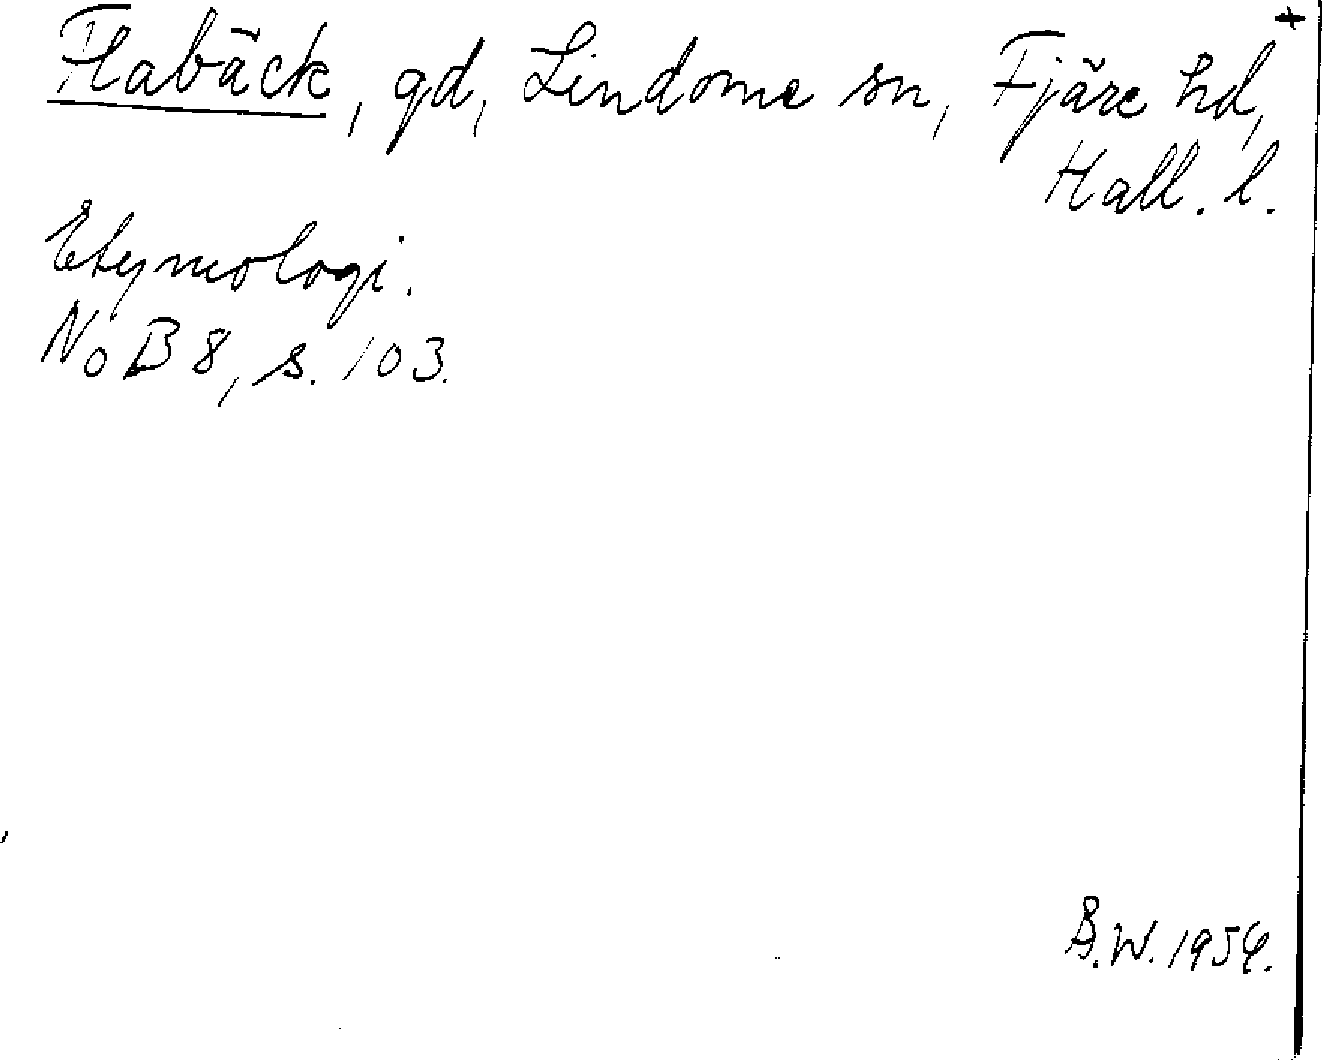 Flabäck, gd, Lindome sn, Fjäre hd, +
Hall. l.
Etymologi.
NoB 8, s. 103.
Å.W. 1954.